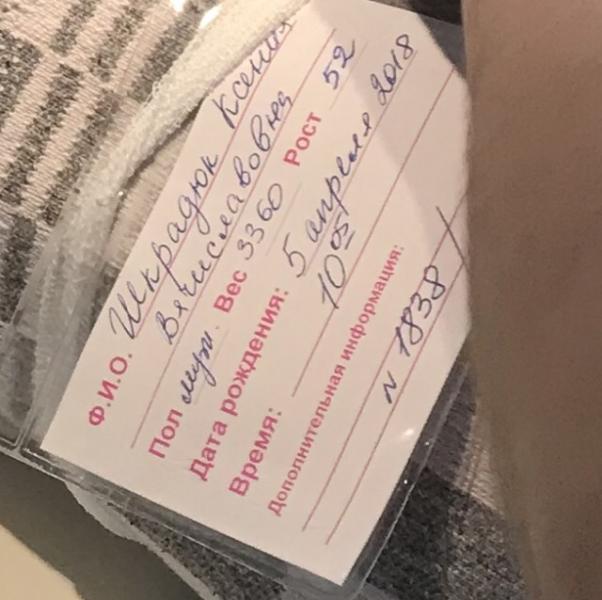 Ф.И.О. Шкрадюк Ксения
Вячеславовна
Пол муж. Вес 3360 Рост 52
Дата рождения: 5 апреля 2018
Время: 10 05
Дополнительная информация:
N 1838/